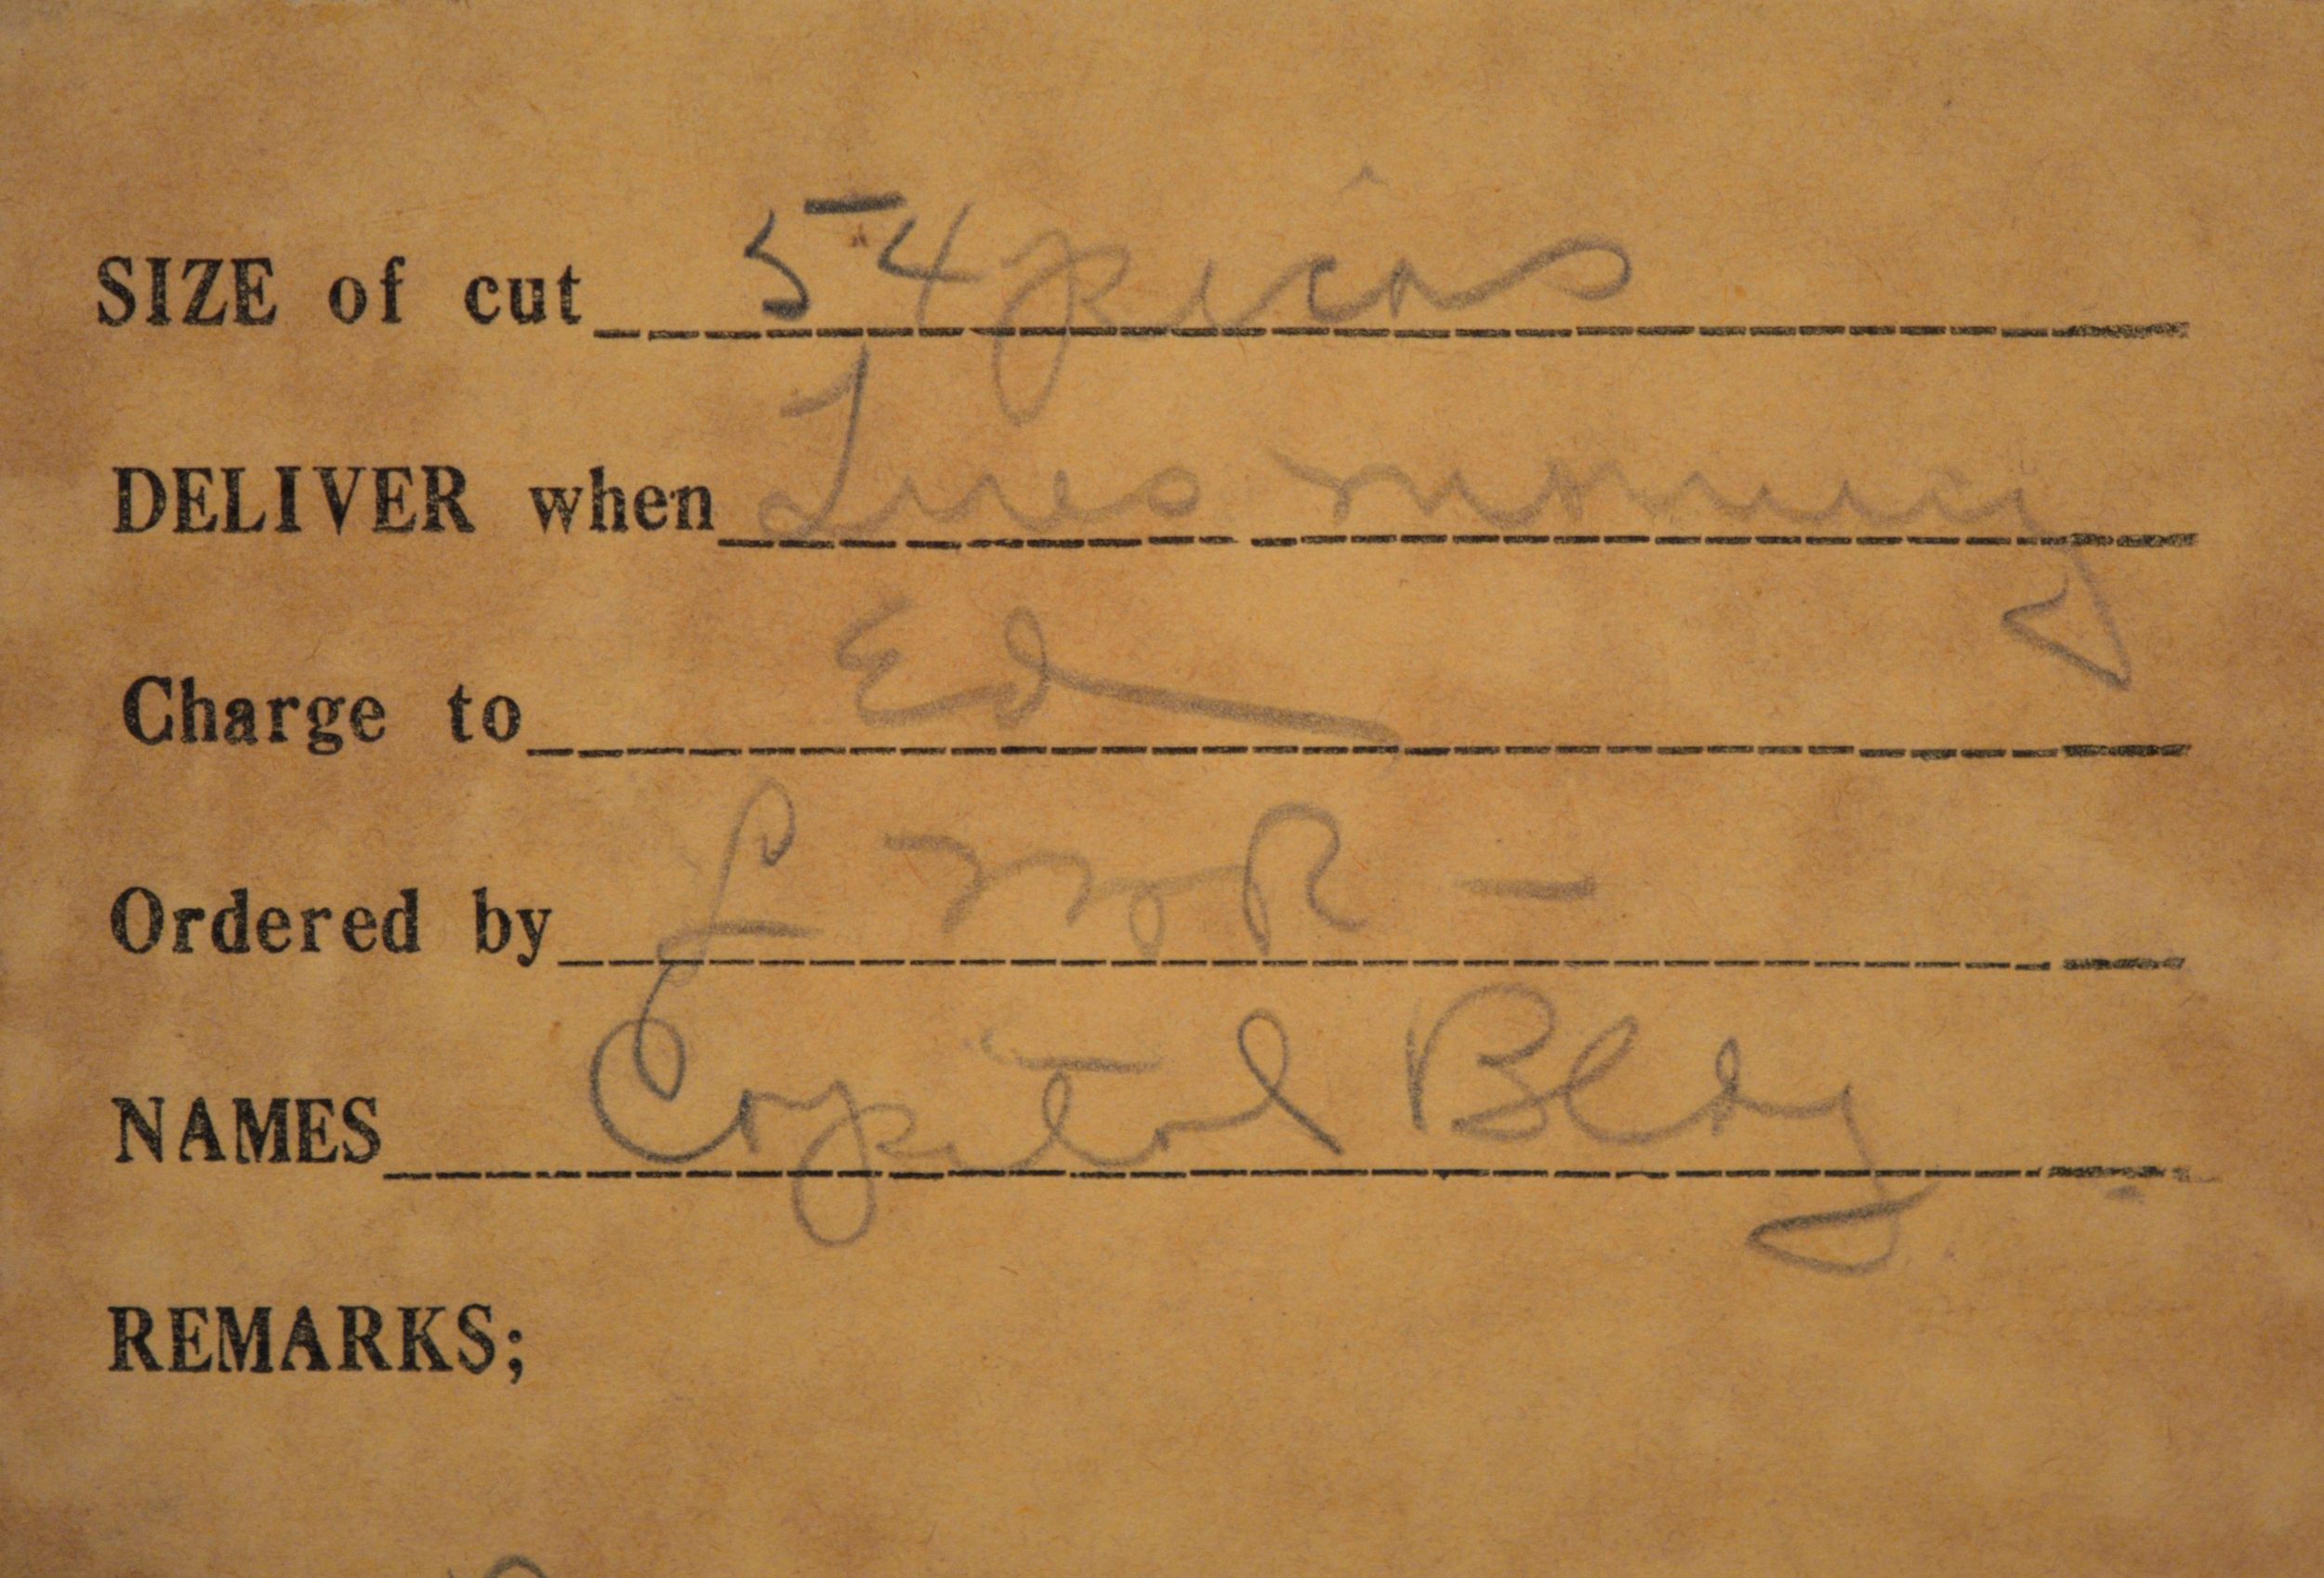 SIZE of cut 54 picas
DELIVER when Tues morning
Charge to Ed
Ordered by
NAMES Capitol Bldg
REMARKS;